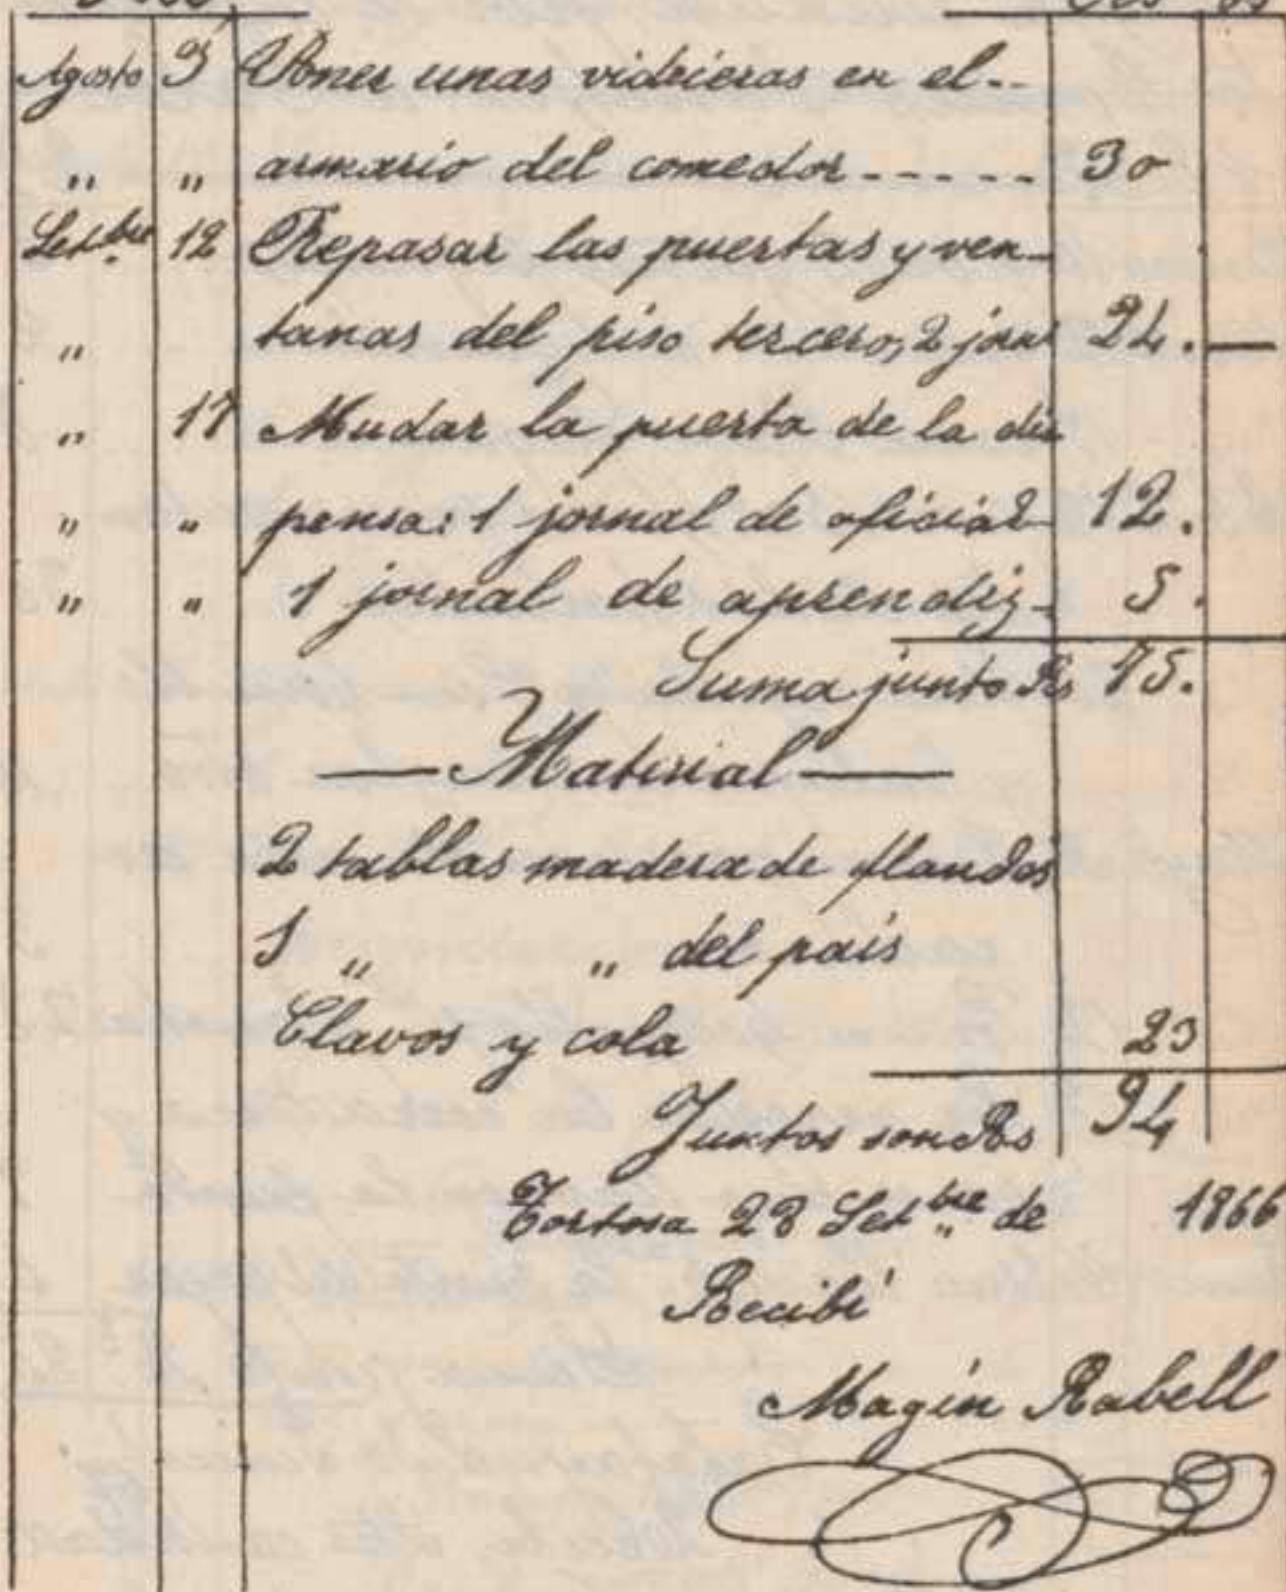 Agosto 3 Poner unas vidrieras en el--
" " armario del comedor ----- 30
Setbre 12 Repasar las puertas y ven-
" tanas del piso tercero, 2 jorns 24.—
" 17 Mudar la puerta de la dis
" " pensa: 1 jornal de oficial- 12.
" " 1 jornal de aprendiz- 5.
Suma junto Rs 75.
— Material —
2 tablas madera de flandes
1 " " del país
Clavos y cola 23
Juntos son Rs 94
Tortosa 28 Setbre de 1866
Recibí
Magín Rabell